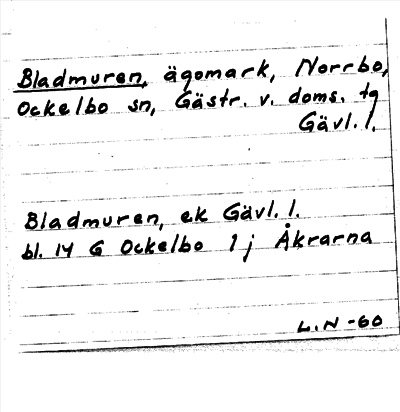 Bladmuren, ägomark, Norrbo,
Ockelbo sn, Gästr. v. doms. tg
Gävl. l.
Bladmuren, ek Gävl. l.
bl. 14 G Ockelbo 1 j Åkrarna
L.N -60